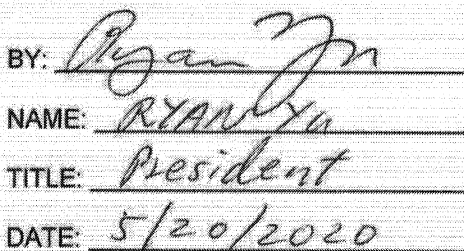 BY: Ryan Yu
NAME: RYAN Yu
TITLE: President
DATE: 5/20/2020